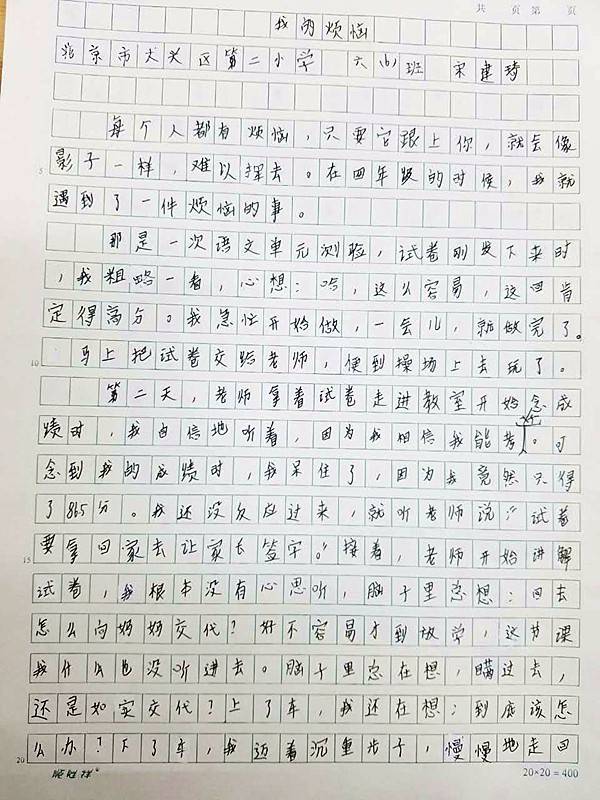 共 页 第 页
我的烦恼
北京市大兴区第二小学 六(6)班 宋建琦
每个人都有烦恼，只要它跟上你，就会像
影子一样，难以挥去。在四年级的时候，我就
遇到了一件烦恼的事。
那是一次语文单元测验，试卷刚发下来时
，我粗略一看，心想：哈，这么容易，这回肯
定得高分。我急忙开始做，一会儿，就做完了。
马上把试卷交给老师，便到操场上去玩了。
第二天，老师拿着试卷走进教室开始念成
绩时，我自信地听着，因为我相信我能考。可
念到我的成绩时，我呆住了，因为我竟然只得
了86.5分。我还没反应过来，就听老师说：“试卷
要拿回家去让家长签字。”接着，老师开始讲解
试卷，我根本没有心思听，脑子里总想：回去
怎么向奶奶交代？好不容易才到放学，这节课
我什么也没听进去。脑子里总在想，瞒过去，
还是如实交代？上了车，我还在想：到底该怎
么办？下了车，我迈着沉重步子，慢慢地走回
20×20=400